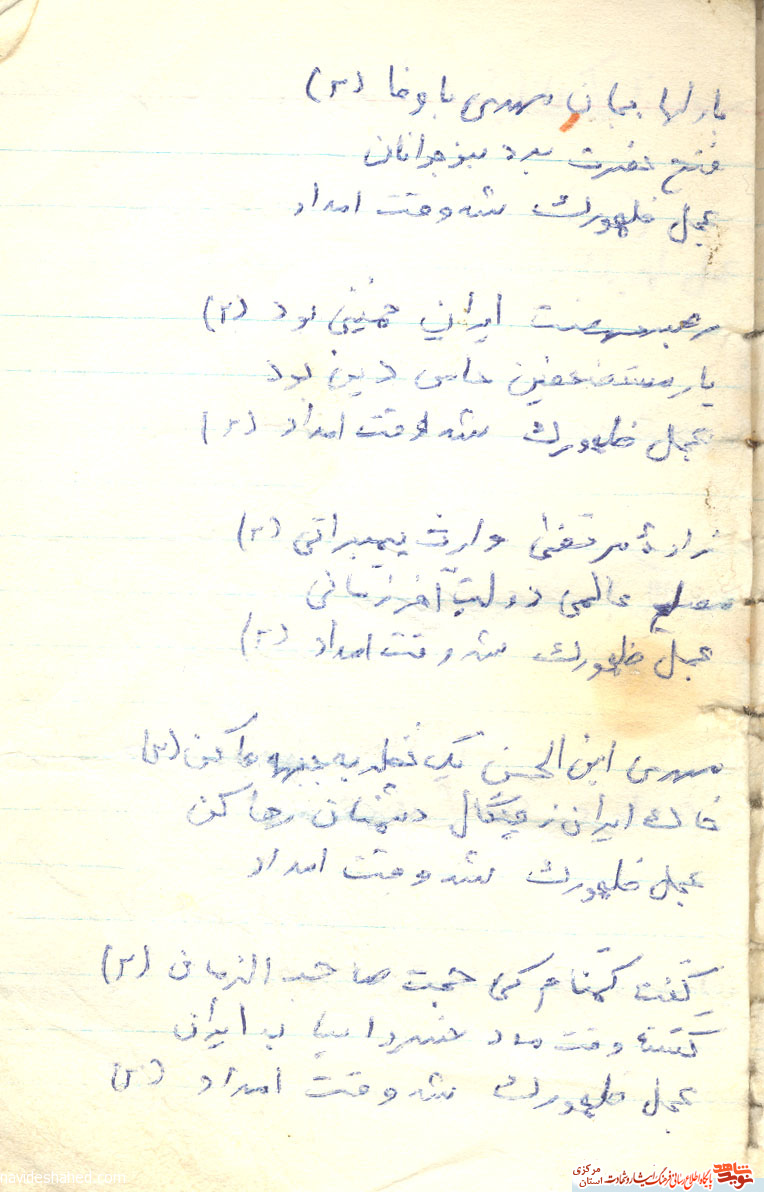 بارلها بجان مهدی با وفا (۲)
فتح نصرت بده بنوجوانان
عجل ظهورك شه وقت امداد
رهبر نهضت ایران خمینی بود (۲)
یار مستضعفین حامی دین بود
عجل ظهورك شه وقت امداد (۲)
زادهٔ مرتضی وارث پیمبرانی (۲)
عالمی دولت آخر زمانی
عجل ظهورك شه وقت امداد (۲)
مهدی ابن الحسن یک نظر به جبهه ما کن (۲)
خاك ایران ز چنگال دشمنان رها کن
عجل ظهورك شه وقت امداد
گفت گمنام کی حجت صاحب الزمان (۲)
گشته وقت مدد خسروا بیا به ایران
عجل ظهورك شه وقت امداد (۲)
navideshahed.com
نوید شاهد
پایگاه اطلاع رسانی فرهنگ ایثار و شهادت
استان مرکزی